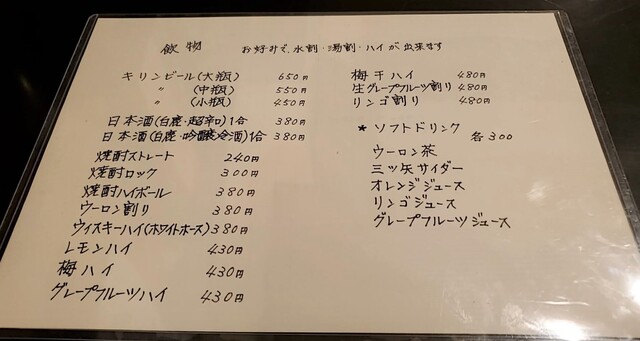 飲物 お好みで、水割・湯割・ハイが出来ます
キリンビール(大瓶) 650円
〃 (中瓶) 550円
〃 (小瓶) 450円
日本酒(白鹿・超辛口)1合 380円
日本酒(白鹿・吟醸冷酒)1合 380円
焼酎ストレート 240円
焼酎ロック 300円
焼酎ハイボール 380円
ウーロン割り 380円
ウィスキーハイ(ホワイトホース) 380円
レモンハイ 430円
梅ハイ 430円
グレープフルーツハイ 430円
梅干ハイ 480円
生グレープフルーツ割り 480円
リンゴ割り 480円
* ソフトドリンク 各300
ウーロン茶
三ツ矢サイダー
オレンジジュース
リンゴジュース
グレープフルーツジュース